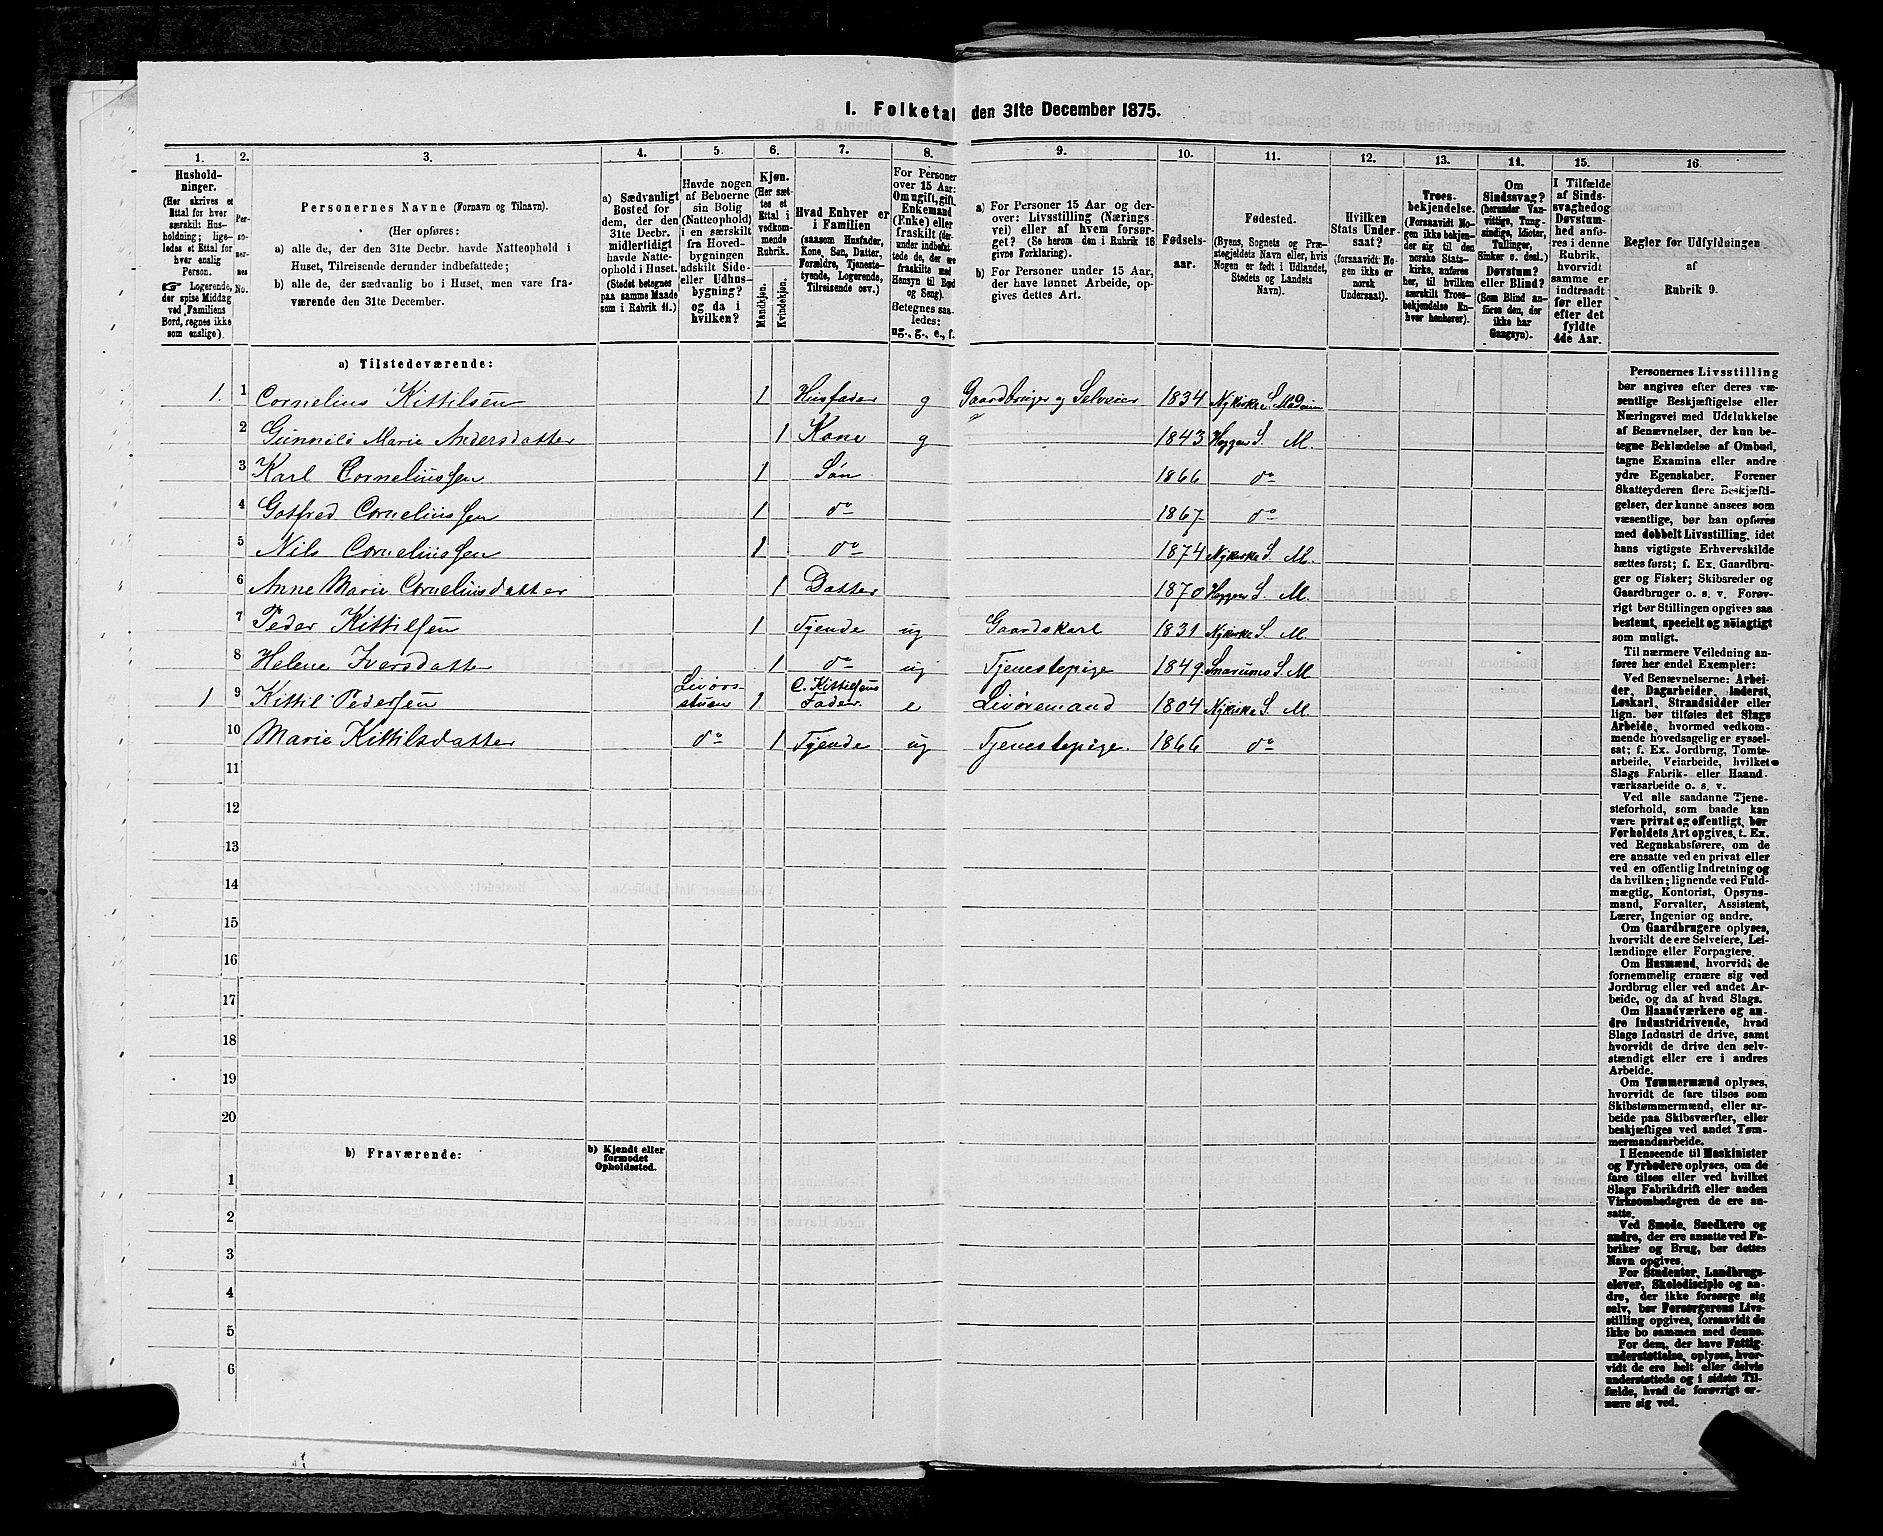 1. Folketal den 31te December 1875.
1. 2. 3. 4. 5. 6. 7. 8. 9. 10. 11. 12. 13. 14. 15. 16.
Hushold-
ninger.
(Her skrives et
Ettal for hver
særskilt Hus-
holdning; lige-
ledes et Ettal for
hver enslig
Person.
☞ Logerende,
der spise Middag
ved Familiens
Bord, regnes ikke
som enslige).
Per-
so-
ner-
nes
No.
Personernes Navne (Fornavn og Tilnavn).
(Her opføres:
a) alle de, der den 31te Decbr. havde Natteophold i
Huset, Tilreisende derunder indbefattede;
b) alle de, der sædvanlig bo i Huset, men vare fra-
værende den 31te December.
a) Sædvanligt
Bosted for
dem, der den
31te Decbr.
midlertidigt
havde Natte-
ophold i Huset.
(Stedet betegnes
paa samme Maade
som i Rubrik 11.)
Havde nogen
af Beboerne
sin Bolig
(Natteophold)
i en særskilt
fra Hoved-
bygningen
adskilt Side-
eller Udhus-
bygning?
og da i
hvilken?
Kjøn.
(Her sæt-
tes et
Ettal i
vedkom-
mende
Rubrik.
Mandkjøn.
Kvindekjøn.
Hvad Enhver er
i Familien
(saasom Husfader,
Kone, Søn, Datter,
Forældre, Tjeneste-
tyende, Logerende,
Tilreisende osv.)
For Personer
over 15 Aar:
Om ugift, gift,
Enkemand
(Enke) eller
fraskilt
Betegnes saa-
ledes:
ug., g., e., f.
a) For Personer 15 Aar og der-
over: Livsstilling (Nærings
vei) eller af hvem forsør-
get? (Se herom den i Rubrik 16
givne Forklaring).
b) For Personer under 15 Aar,
der have lønnet Arbeide, op-
gives dettes Art.
Fødsels-
aar.
Fødested.
(Byens, Sognets og Præ-
stegjeldets Navn eller, hvis
Nogen er født i Udlandet,
Stedets og Landets
Navn).
Hvilken
Stats Under-
saat?
(forsaavidt No-
gen ikke er
norsk
Undersaat).
Troes-
bekjendelse.
(Forsaavidt No-
gen ikke bekjen-
der sig til den
norske Stats-
kirke, anføres
her, til hvilken
særskilt Troes-
bekjendelse En-
hver henhører).
Om
Sindssvag?
(herunder Van-
vittige, Tung-
sindige, Idioter,
Tullinger,
Sinker o. desl.)
Døvstum?
eller Blind?
(Som Blind an-
føres den, der
ikke har
Gangsyn).
I Tilfælde
af Sinds-
svaghed og
Døvstum-
hed anfø-
res i denne
Rubrik,
hvorvidt
samme er
indtraadt
før eller
efter det
fyldte
4de Aar.
Regler for Udfyldningen
af
Rubrik 9.
a) Tilstedeværende:
1. 1 Cornelius Kittilsen 1 Husfader g Gaardbruger og Selveier 1834 Nykirke S. Modum
2 Gunnild Marie Andersdatter 1 Kone g 1843 Heggen S. M.
3 Karl Corneliussen 1 Søn 1866 do
4 Gotfred Corneliussen 1 do 1867 do
5 Nils Corneliussen 1 do 1874 Nykirke S. M.
6 Anne Marie Corneliusdatter 1 Datter 1870 Heggen S. M.
7 Peder Kittilsen 1 Tyende ug Gaardskarl 1831 Nykirke S. M.
8 Helene Iversdatter 1 do ug Tjenestepige 1849 Snarums S. M
1 9 Kittil Pedersen Livørs-
stuen 1 C. Kittilsens
Fader. e Livøremand 1804 Nykirke S. M.
10 Marie Kittilsdatter do 1 Tyende ug Tjenestepige. 1866 do
11
12
13
14
15
16
17
18
19
20
b) Fraværende:
b) Kjendt eller
formodet
Opholdssted.
1
2
3
4
5
6
Personernes Livsstilling
bør angives efter deres væ-
sentlige Beskjæftigelse eller
Næringsvei med Udelukkelse
af Benævnelser, der kun be-
tegne Beklædelse af Ombud,
tagne Examina eller andre
ydre Egenskaber. Forener
Skatteyderen flere Beskjæfti-
gelser, der kunne ansees som
væsentlige, bør han opføres
med dobbelt Livsstilling, idet
hans vigtigste Erhvervskilde
sættes først; f. Ex. Gaardbru-
ger og Fisker; Skibsreder og
Gaardbruger o. s. v. Forøv-
rigt bør Stillingen opgives saa
bestemt, specielt og nöiagtigt
som muligt.
Til nærmere Veiledning an-
føres her endel Exempler:
Ved Benævnelserne: Arbei-
der, Dagarbeider, Inderst,
Løskarl, Strandsidder eller
lign. bør tilføies det Slags
Arbeide, hvormed vedkom-
mende hovedsagelig er syssel-
sat; f. Ex. Jordbrug, Tomte-
arbeide, Veiarbeide, hvilket
Slags Fabrik- eller Haand-
værksarbeide o. s. v.
Ved alle saadanne Tjene-
steforhold, som baade kan
være privat og offentligt, bør
Forholdets Art opgives, t. Ex.
ved Regnskabsførere, om de
ere ansatte ved en privat eller
ved en offentlig Indretning og
da hvilken; lignende ved Fuld-
mægtig, Kontorist, Opsyns-
mand, Forvalter, Assistent,
Lærer, Ingeniør og andre.
Om Gaardbrugere oplyses,
hvorvidt de ere Selveiere, Lei-
lændinge eller Forpagtere.
Om Husmænd, hvorvidt de
fornemmelig ernære sig ved
Jordbrug eller ved andet Ar-
beide, og da af hvad Slags.
Om Haandværkere og an-
dre Industridrivende, hvad
Slags Industri de drive, samt
hvorvidt de drive den selv-
stændigt eller ere i andres
Arbeide.
Om Tømmermænd oplyses,
hvorvidt de fare tilsøs som
Skibstømmermænd, eller ar-
beide paa Skibsværfter, eller
beskjæftiges ved andet Tøm-
mermandsarbeide.
I Henseende til Maskinister
og Fyrbødere oplyses, om de
fare tilsøs eller ved hvilket
Slags Fabrikdrift eller anden
Virksomhedsgren de ere an-
satte.
Ved Smede, Snedkere og
andre, der ere ansatte ved Fa-
briker og Brug, bør dettes
Navn opgives.
For Studenter, Landbrugs-
elever, Skoledisciple og an-
dre, der ikke forsørge sig
selv, bør Forsørgerens Livs-
stilling opgives, forsaavidt de
ikke bo sammen med denne.
For dem, der have Fattig-
understøttelse, oplyses, hvor-
vidt de ere helt eller delvis
understøttede og i sidste Til-
fælde, hvad de forøvrigt er-
nære sig ved.